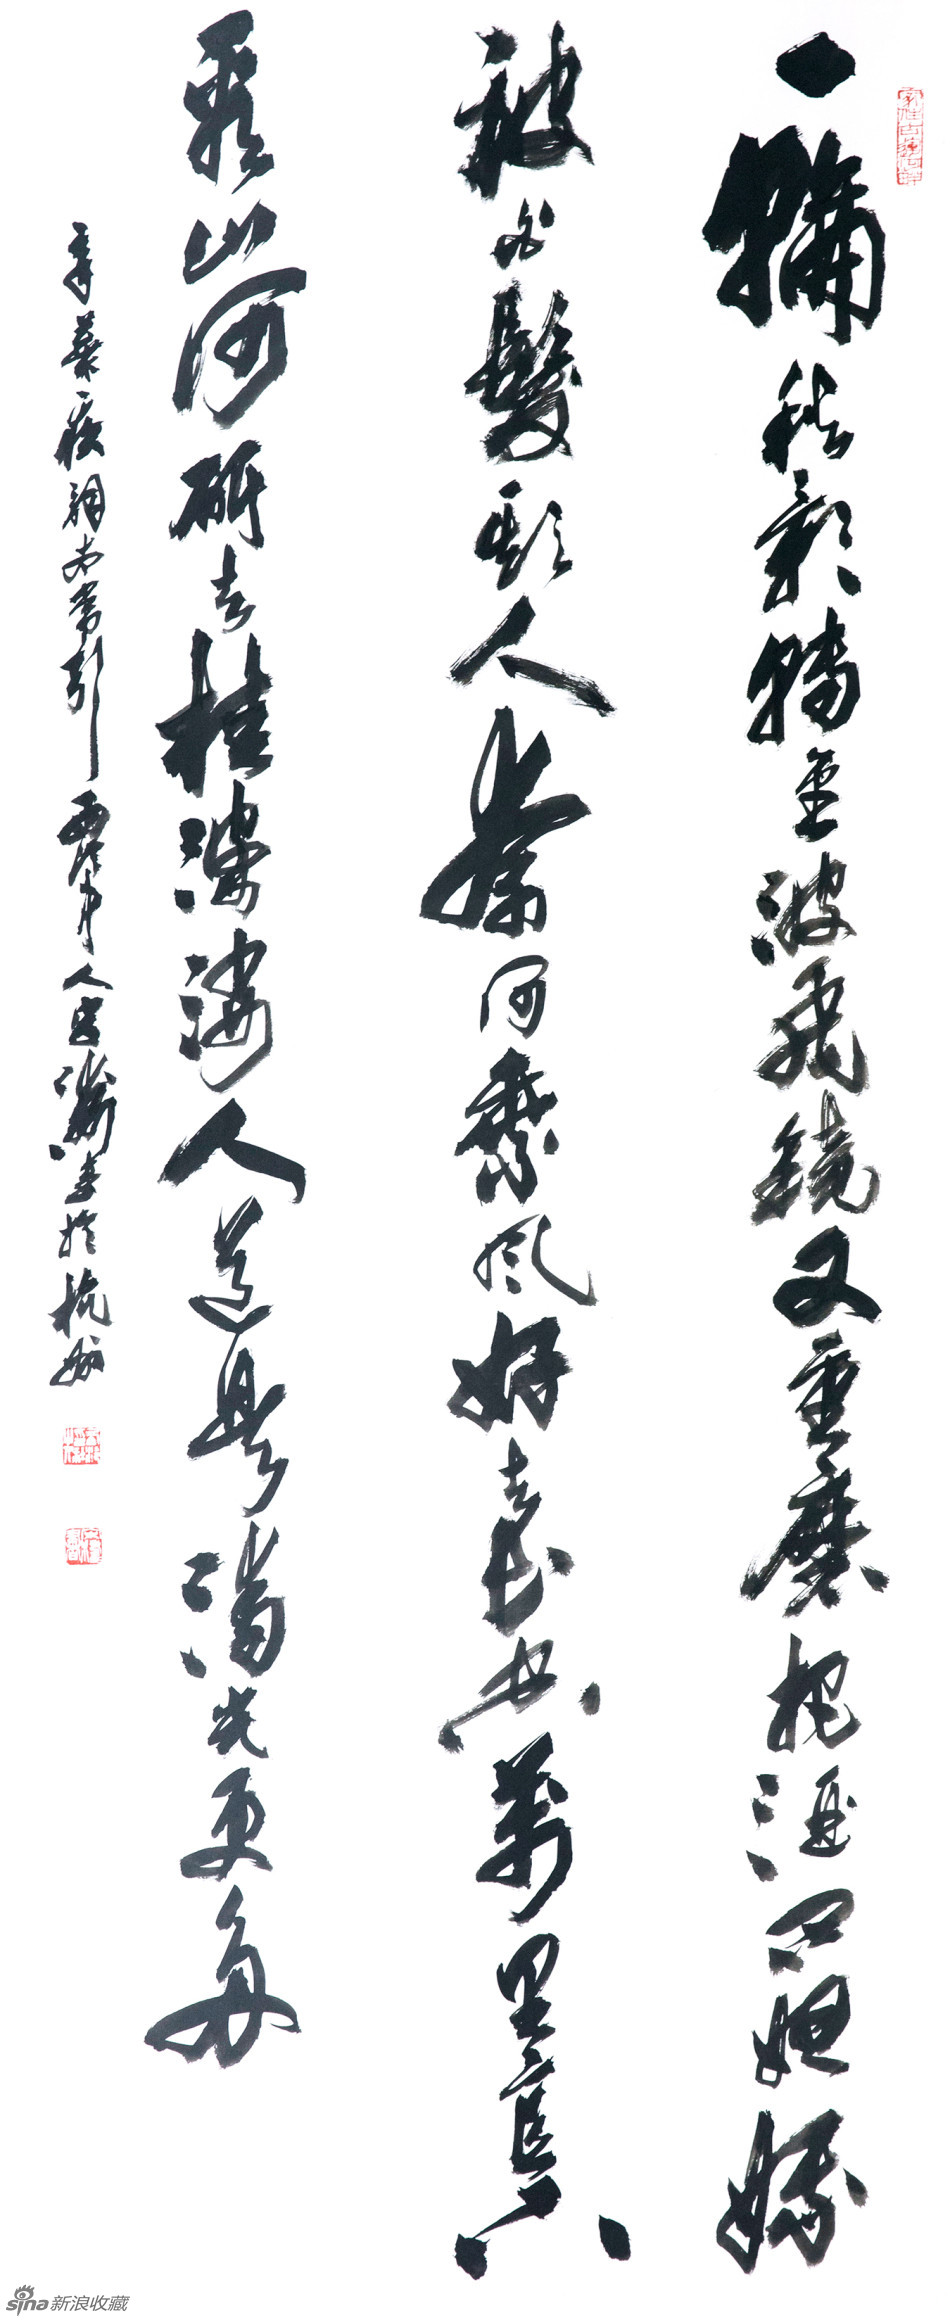 一輪秋影轉金波飛鏡又重磨把酒问姮娥
被白髮欺人奈何乘風好去長空萬里直下
看山河斫去桂婆娑人道是清光更多
辛棄疾詞太常引 人書於杭州
sina新浪收藏